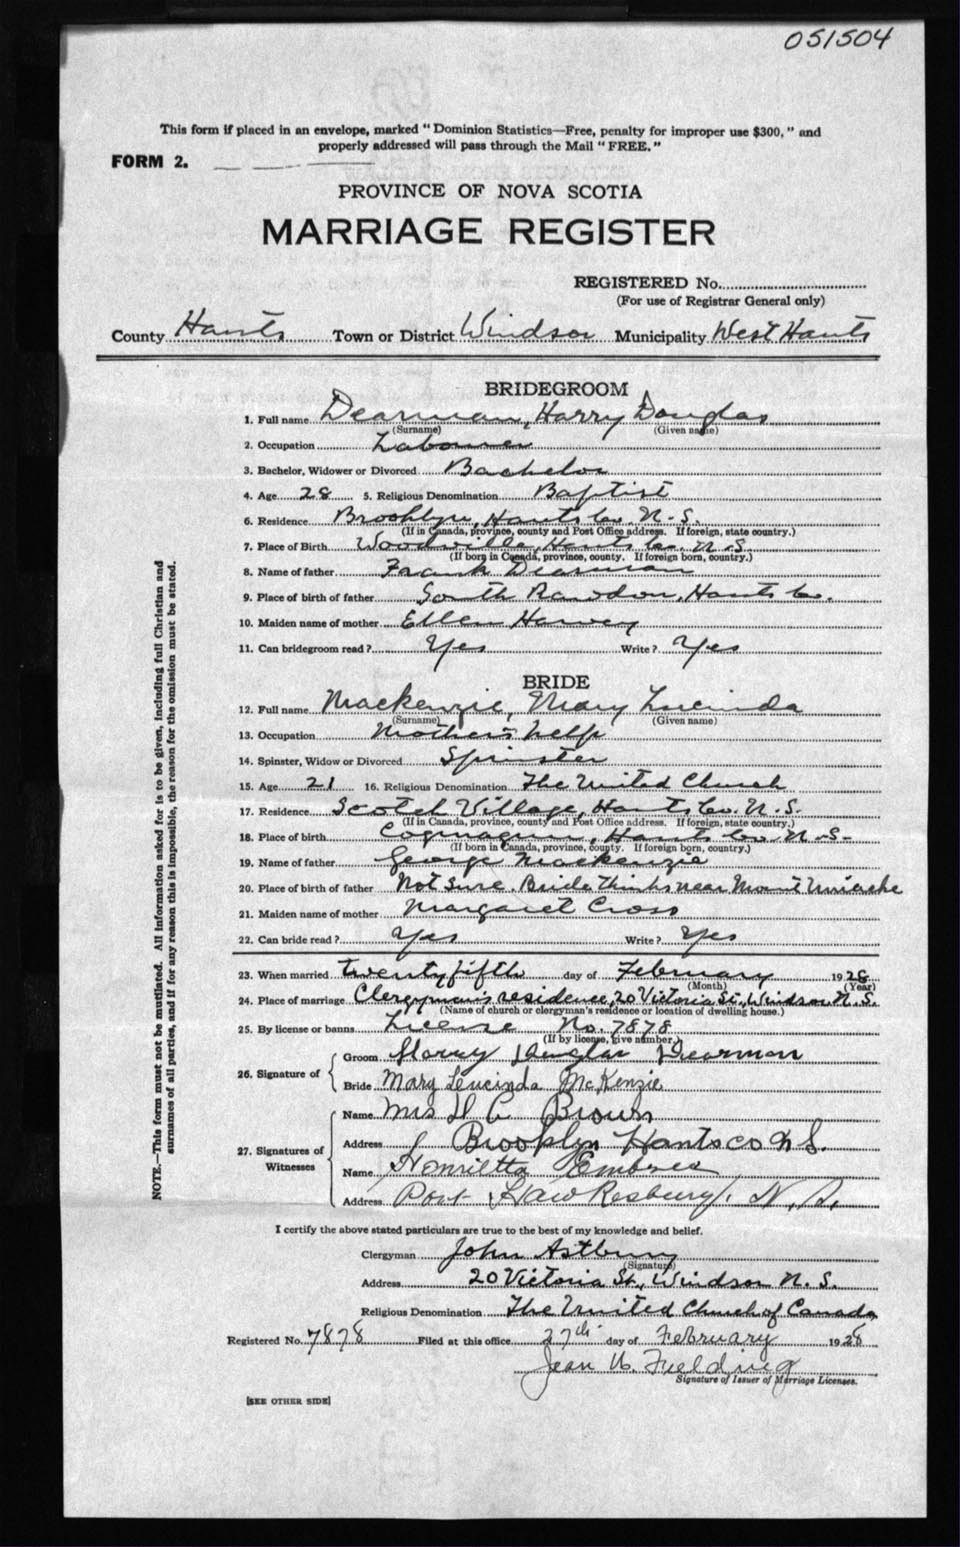 051504
This form if placed in an envelope, marked "Dominion Statistics—Free, penalty for improper use $300," and
properly addressed will pass through the Mail "FREE."
FORM 2.
PROVINCE OF NOVA SCOTIA
MARRIAGE REGISTER
REGISTERED No.
(For use of Registrar General only)
County Hants Town or District Windsor Municipality West Hants
BRIDEGROOM
1. Full name Dearman, Harry Douglas
(Surname) (Given name)
2. Occupation Labourer
3. Bachelor, Widower or Divorced Bachelor
4. Age 28 5. Religious Denomination Baptist
6. Residence Brooklyn, Hants Co. N.S.
(If in Canada, province, county and Post Office address. If foreign, state country.)
7. Place of Birth Woodville, Hants Co. N.S.
(If born in Canada, province, county. If foreign born, country.)
8. Name of father Frank Dearman
9. Place of birth of father South Rawdon, Hants Co.
10. Maiden name of mother Ellen Harvey
11. Can bridegroom read? Yes Write? Yes
BRIDE
12. Full name Mackenzie, Mary Lucinda
(Surname) (Given name)
13. Occupation Mother's help
14. Spinster, Widow or Divorced Spinster
15. Age 21 16. Religious Denomination The United Church
17. Residence Scotch Village, Hants Co. N.S.
(If in Canada, province, county and Post Office address. If foreign, state country.)
18. Place of birth Cogmagun, Hants Co. N.S.
(If born in Canada, province, county. If foreign born, country.)
19. Name of father George Mackenzie
20. Place of birth of father Not sure. Bride thinks near Mount Uniacke
21. Maiden name of mother Margaret Cross
22. Can bride read? Yes Write? Yes
23. When married twenty fifth day of February 1928
(Month) (Year)
24. Place of marriage Clergyman's residence, 20 Victoria St., Windsor N.S.
(Name of church or clergyman's residence or location of dwelling house.)
25. By license or banns License No. 7878
(If by license, give number.)
26. Signature of
Groom Harry Douglas Dearman
Bride Mary Leucinda McKenzie
27. Signatures of Witnesses
Name Mrs H C Brown
Address Brooklyn Hants co N S.
Name Henrietta Embree
Address Port Hawkesbury, N.S.
I certify the above stated particulars are true to the best of my knowledge and belief.
Clergyman John Astbury
(Signature)
Address 20 Victoria St., Windsor N.S.
Religious Denomination The United Church of Canada
Registered No. 7878 Filed at this office 27th day of February 1928
Jean W. Fielding
Signature of Issuer of Marriage Licenses.
[SEE OTHER SIDE]
NOTE.—This form must not be mutilated. All information asked for is to be given, including full Christian and
surnames of all parties, and if for any reason this is impossible, the reason for the omission must be stated.